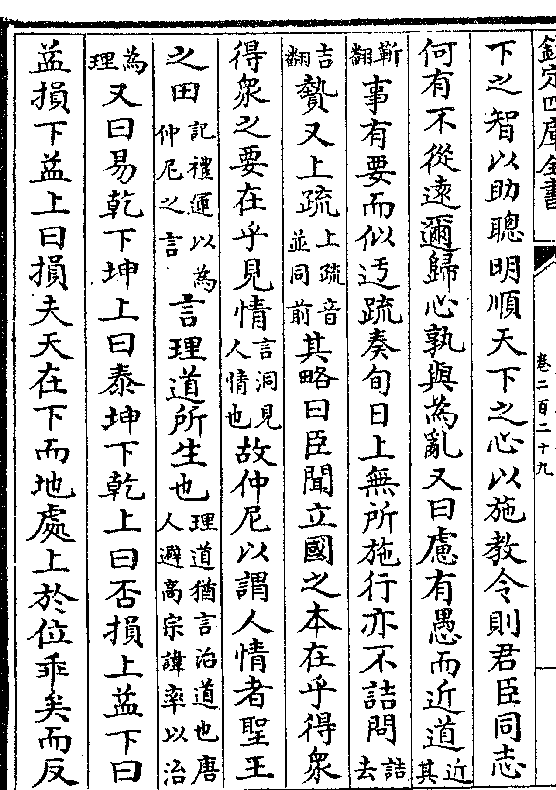 欽定四庫全書
卷二百二十九
下之智以助聰明順天下之心以施教令則君臣同志
何有不從遠邇歸心孰與為亂又曰慮有愚而近道近其
靳翻事有要而似迂疏奏旬日上無所施行亦不詰問詰去
吉翻贄又上疏上疏音並同前其略曰臣聞立國之本在乎得衆
得衆之要在乎見情言洞見人情也故仲尼以謂人情者聖王
之田記禮運以為仲尼之言言理道所生也理道猶言治道也唐人避高宗諱率以治
為理又曰易乾下坤上曰泰坤下乾上曰否損上益下曰
益損下益上曰損夫天在下而地處上於位乖矣而反